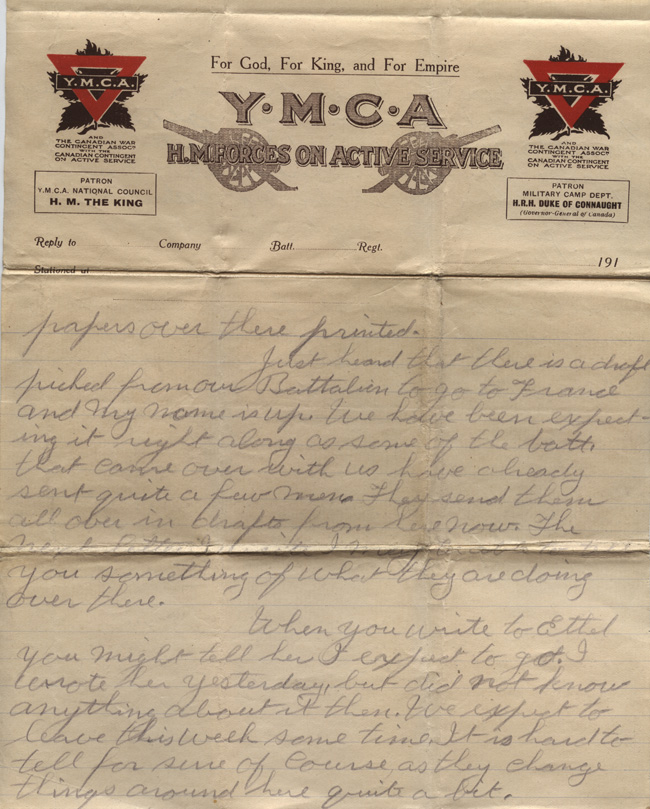 For God, For King, and For Empire
Y·M·C·A
H.M. FORCES ON ACTIVE SERVICE
Y.M.C.A.
AND
THE CANADIAN WAR
CONTINGENT ASSOCN
WITH THE
CANADIAN CONTINGENT
ON ACTIVE SERVICE
PATRON
Y.M.C.A. NATIONAL COUNCIL
H. M. THE KING
Y.M.C.A.
AND
THE CANADIAN WAR
CONTINGENT ASSOCN
WITH THE
CANADIAN CONTINGENT
ON ACTIVE SERVICE
PATRON
MILITARY CAMP DEPT.
H.R.H. DUKE OF CONNAUGHT
(Governor-General of Canada)
Reply to Company Batt. Regt.
Stationed at 191
papers over there printed.
Just heard that there is a draft
picked from our Battalion to go to France
and my name is up. We have been expect-
ing it right along as some of the batt.
that came over with us have already
sent quite a few men. They send them
all over in drafts from here now. The
next letter I write I
you something of what they are doing
over there.
When you write to Ethel
you might tell her I expect to go. I
wrote her yesterday, but did not know
anything about it then. We expect to
leave this week some time. It is hard to
tell for sure of course as they change
things around here quite a bit.